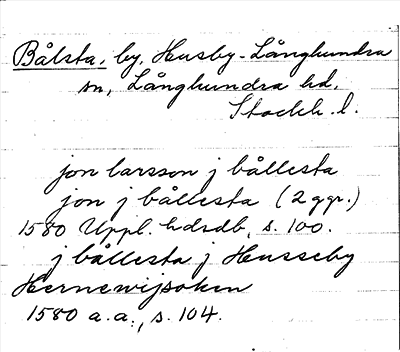 Bålsta, by, Husby-Långhundra
sn, Långhundra hd,
Stockh. l.
jon larsson j bållesta
jon j bållesta (2 ggr.)
1580 Uppl. hdrdb, s. 100.
j bållesta j Husseby
Hernewijsoken
1580 a.a., s. 104.